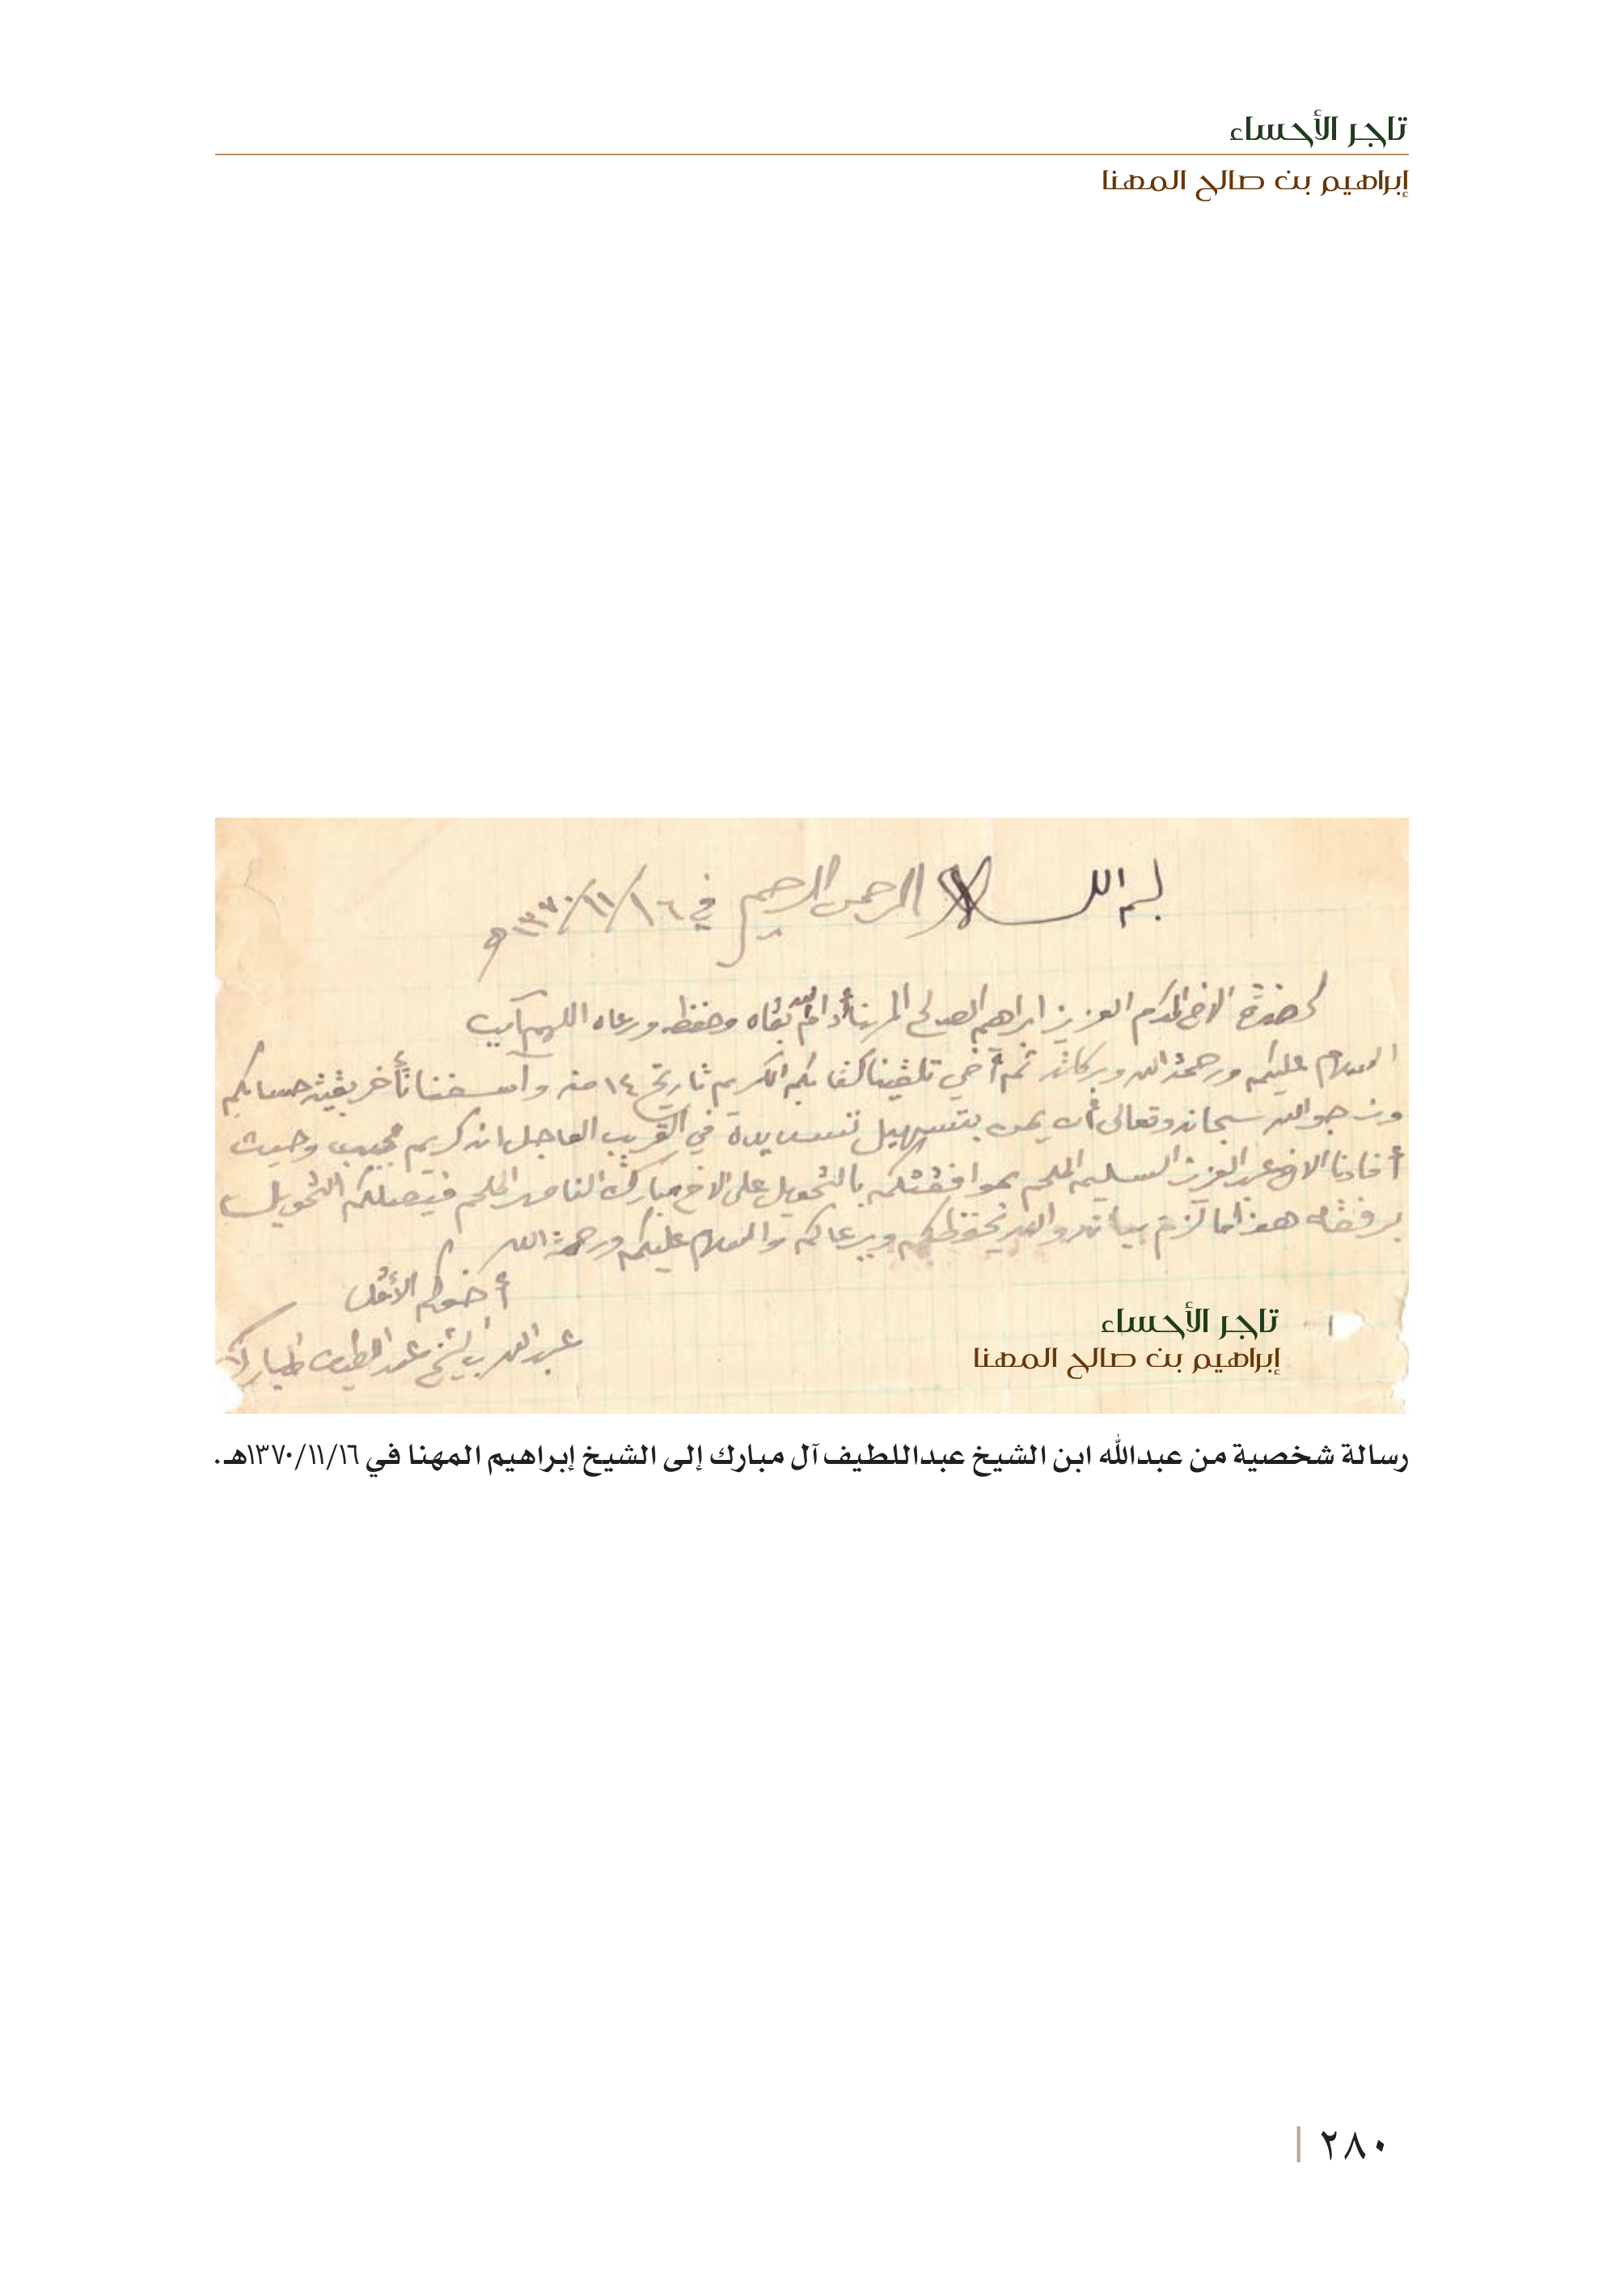 تاجر الأحساء
إبراهيم بن صالح المهنا
بسم الله الرحمن الرحيم في ١٦/١١/١٣٧٠هـ
لحضرة الاخ المكرم العزيز ابراهيم الصالح المهنا أدام الله بقاه وحفظه ورعاه اللهم آمين
السلام عليكم ورحمة الله وبركاته ثم أخي تلقينا كتابكم الكريم تاريخ ١٤ منه وآسفنا تأخر بقية حسابكم
ونرجو الله سبحانه وتعالى أن يمن بتسهيل تسديدة في القريب العاجل انه كريم مجيب وحيث
أفادنا الاخ عبد العزيز السليم الملحم بموافقتكم بالتحويل على الاخ مبارك الناصر الملحم فيصلكم التحويل
برفقه هذا ما لزم بيانه والله يحفظكم ويرعاكم والسلام عليكم ورحمة الله
أخوكم الأقل
عبد الله بن الشيخ عبد اللطيف المبارك
تاجر الأحساء
إبراهيم بن صالح المهنا
رسالة شخصية من عبدالله ابن الشيخ عبداللطيف آل مبارك إلى الشيخ إبراهيم المهنا في ١٣٧٠/١١/١٦هـ.
٢٨٠